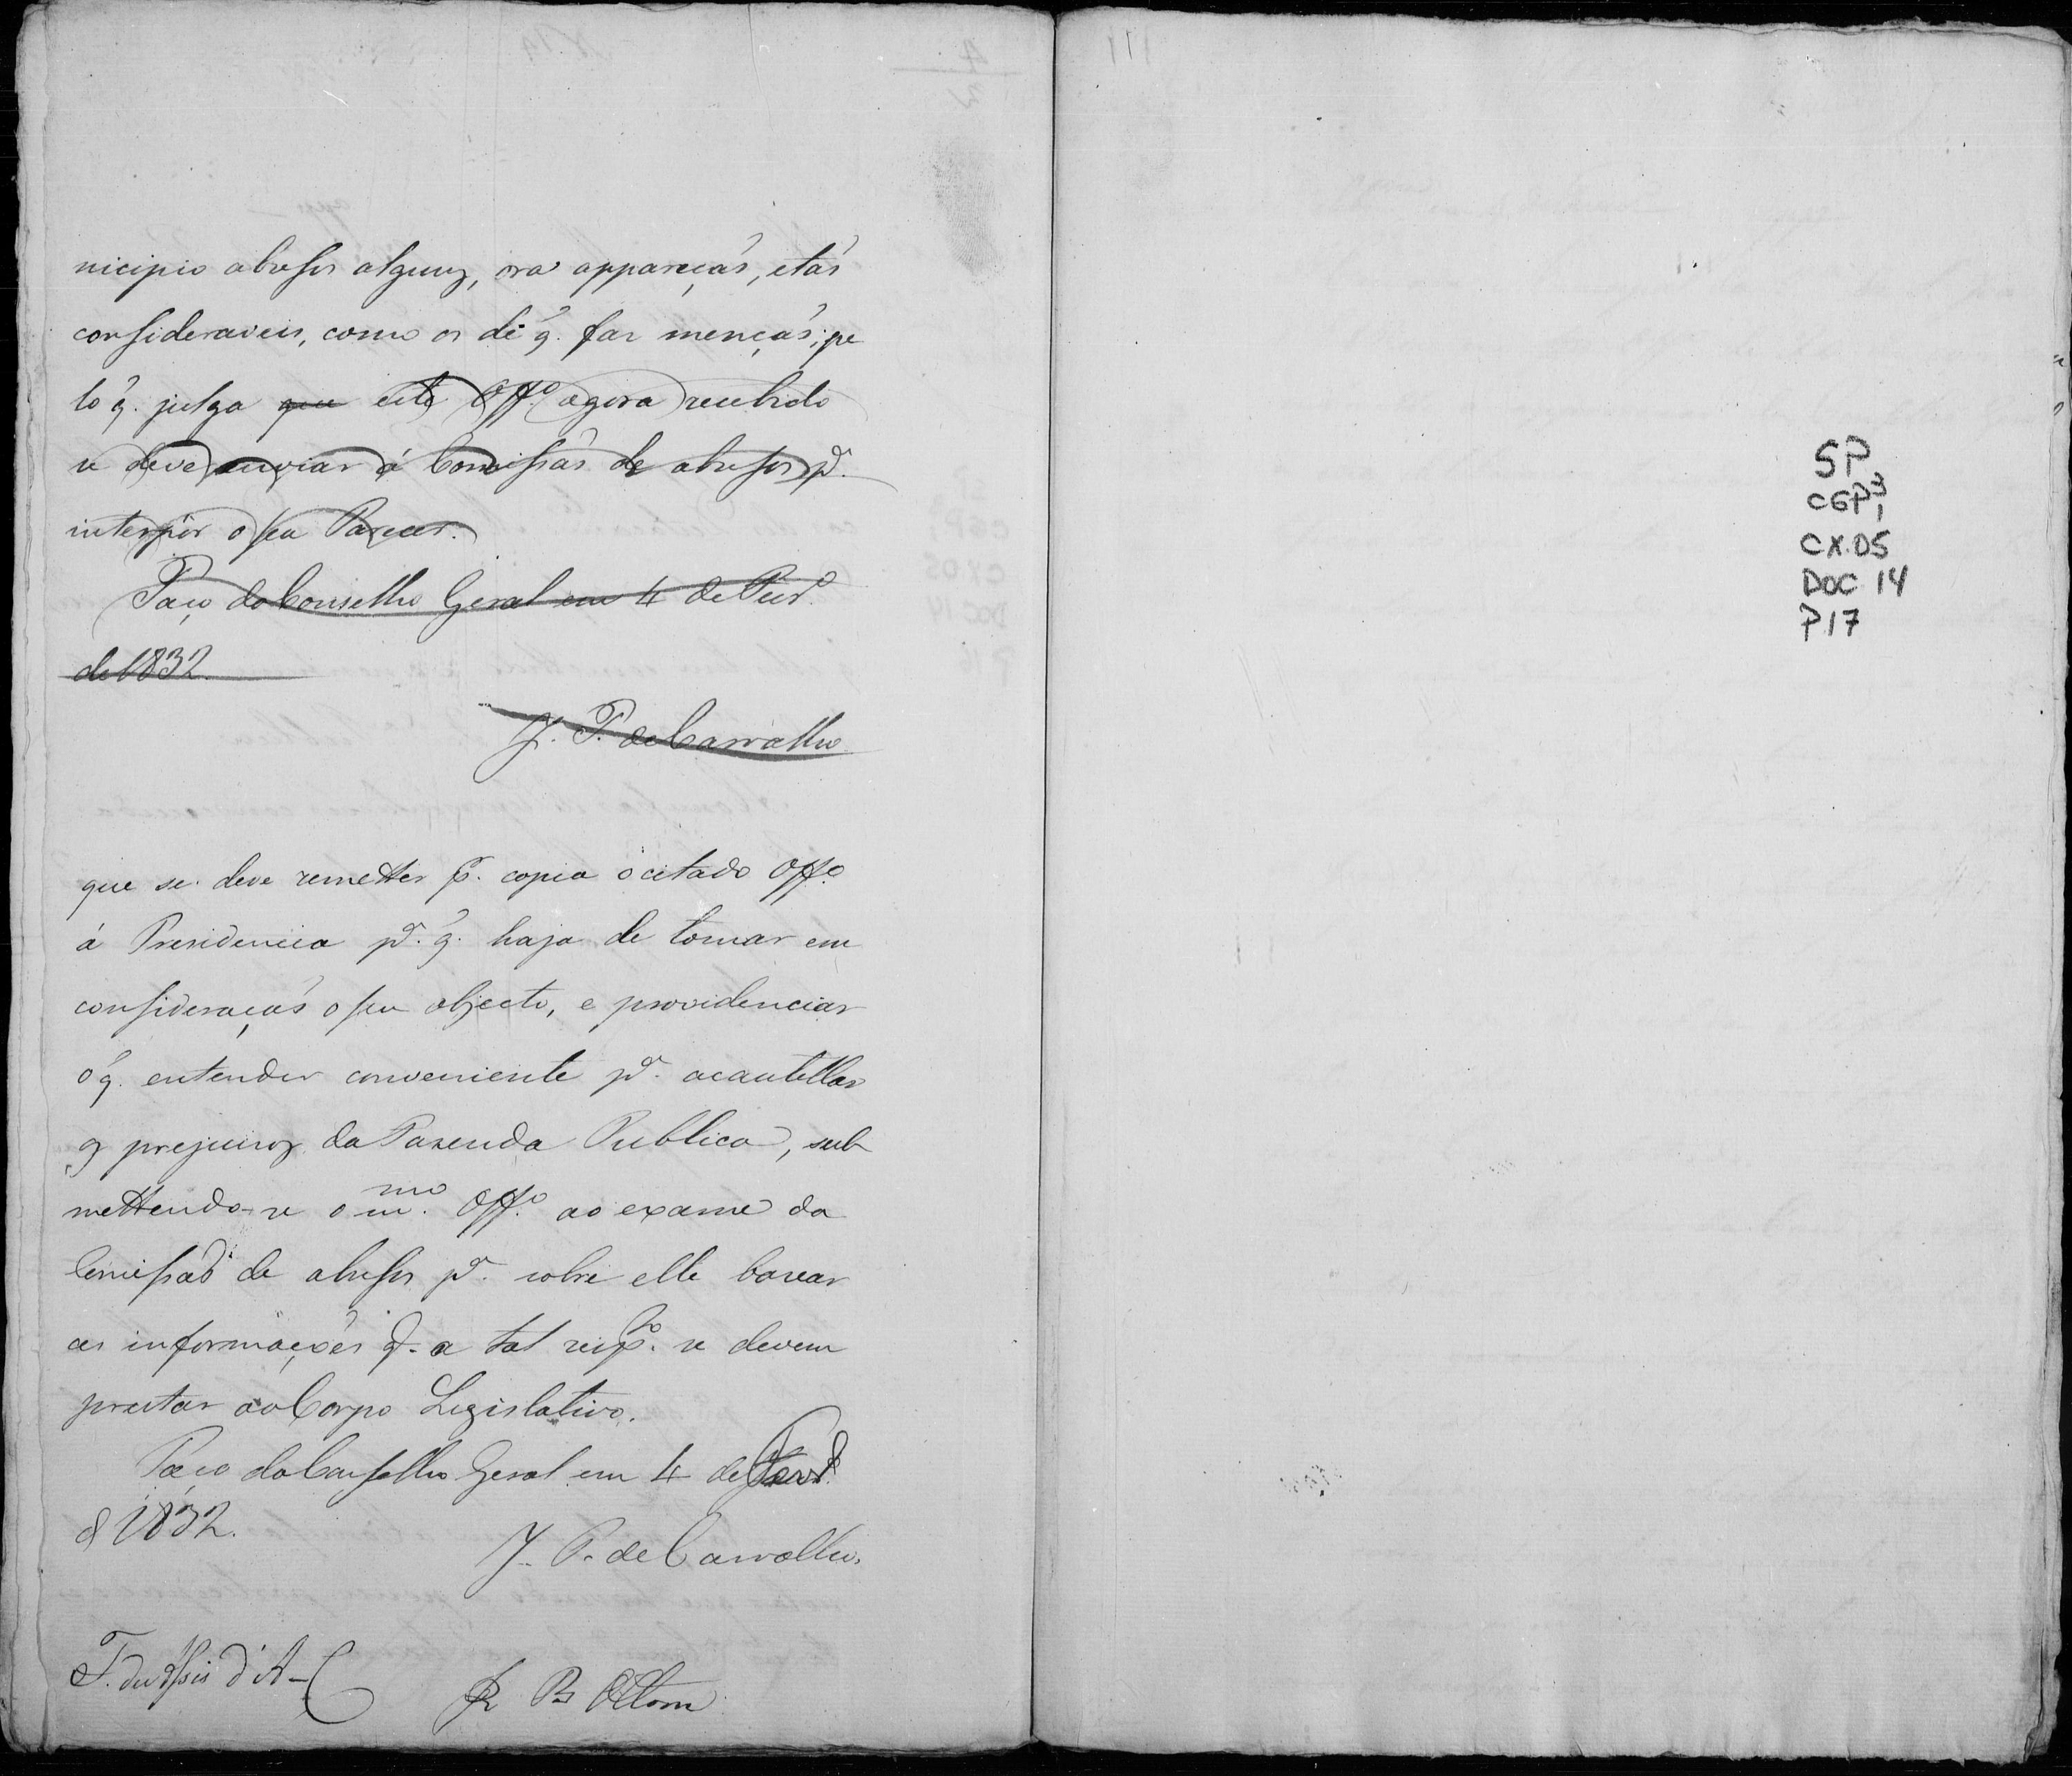 nicipio abusos alguns, ora appareçaõ, e taõ
consideraveis, como os de q. faz mençaõ; pe
lo q. julga que este Off.o agora recebido
se deve enviar á Comissaõ de abusos p.a
interpôr o seu Parecer.
Paço do Conselho Geral em 4 de Fevr.o
de 1832.
J. F. de Carvalho
que se deve remetter p. copia o citado Off.o
á Presidencia p.a q. haja de tomar em
consideraçaõ o seu objecto, e providenciar
o q. entender conveniente p.a acautellar
os prejuizos da Fazenda Publica, sub
mettendo-se o m.mo Off.o ao exame da
Comissaõ de abusos p.a sobre elle bazear
as informaçoẽs q. a tal resp.to se devem
prestar ao Corpo Legislativo.
Paço do Conselho Geral em 4 de Fevr.o
d 1832.
J. P. de Carvalho.
F. de Assis d'A-C
B Ottoni
SP
CGP3
1
CX.05
DOC 14
P17